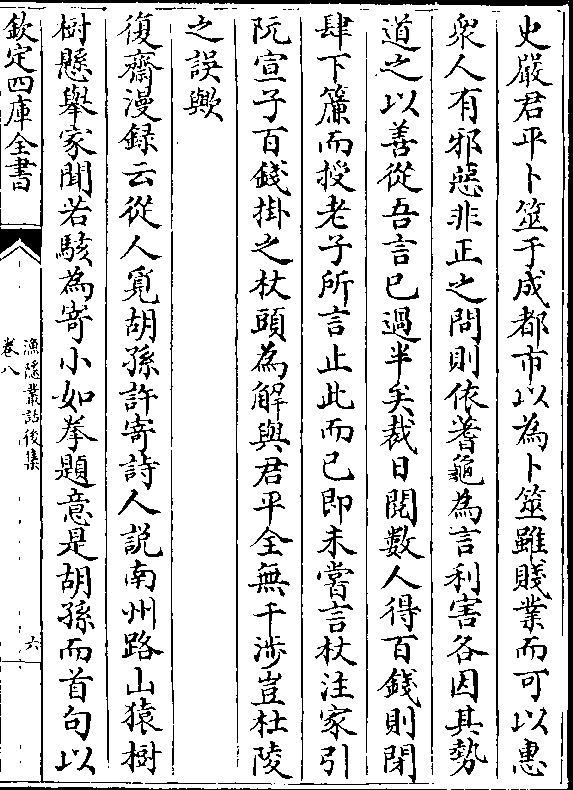 史嚴君平卜筮于成都市以為卜筮雖賤業而可以惠
衆人有邪惡非正之問則依蓍龜為言利害各因其勢
道之以善從吾言已過半矣裁日閱數人得百錢則閉
肆下簾而授老子所言止此而已即未嘗言杖注家引
阮宣子百錢掛之杖頭為解與君平全無干涉豈杜陵
之誤歟
復齋漫録云從人覓胡孫許寄詩人説南州路山猿樹
樹懸舉家聞若駭為寄小如拳題意是胡孫而首句以
欽定四庫全書
漁隱叢話後集
卷八
六